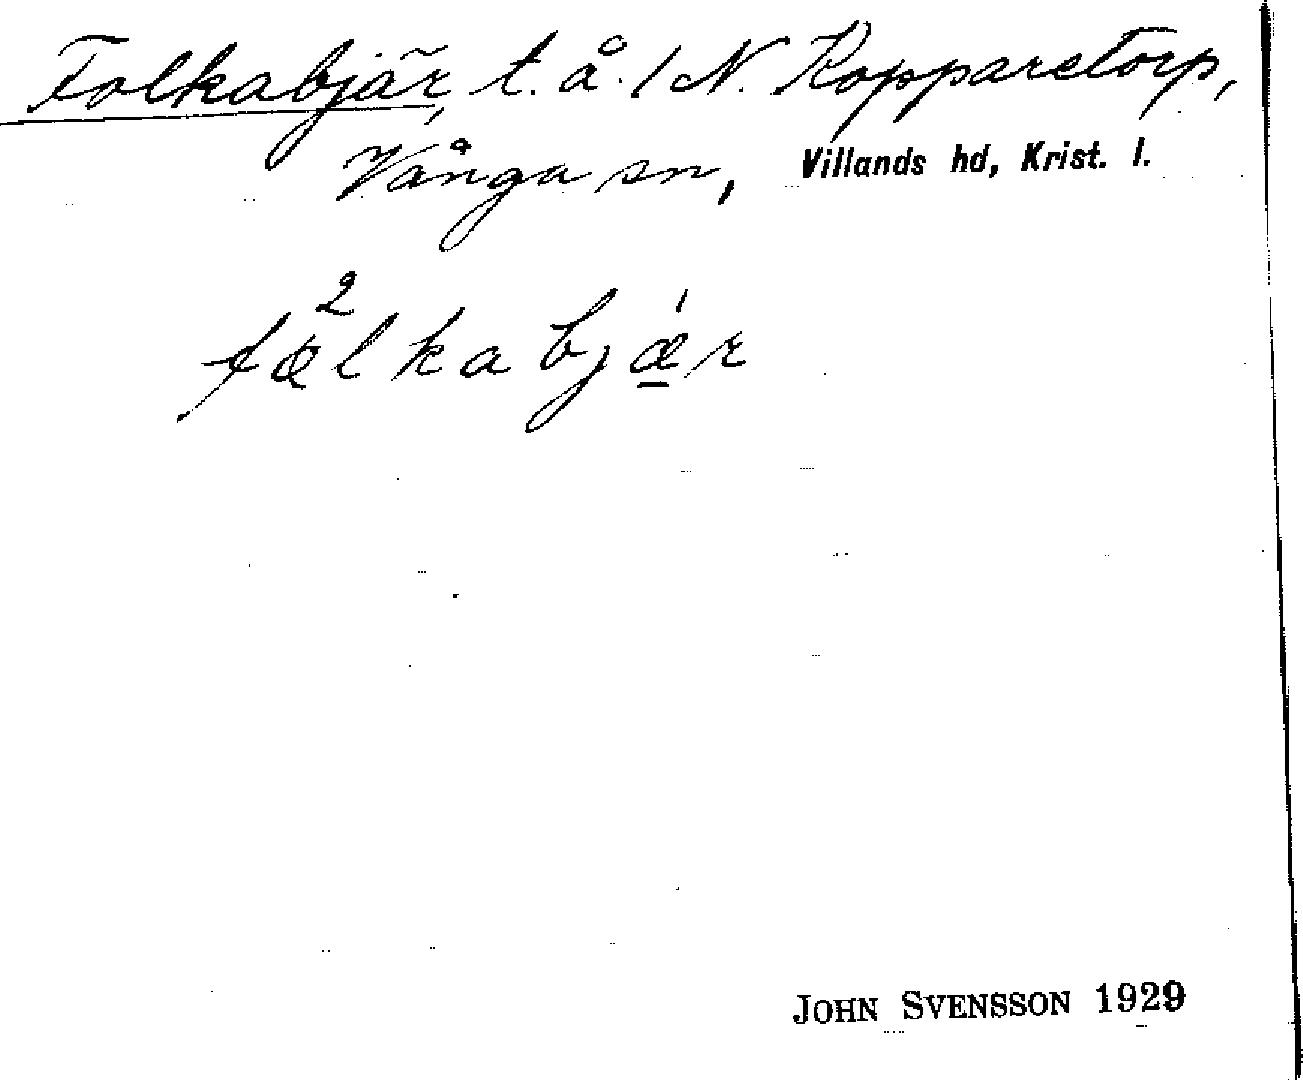 Folkabjär, t. å. / N. Kopparetorp,
Vånga sn, Villands hd, Krist. l.
fælkabjær
JOHN SVENSSON 1929